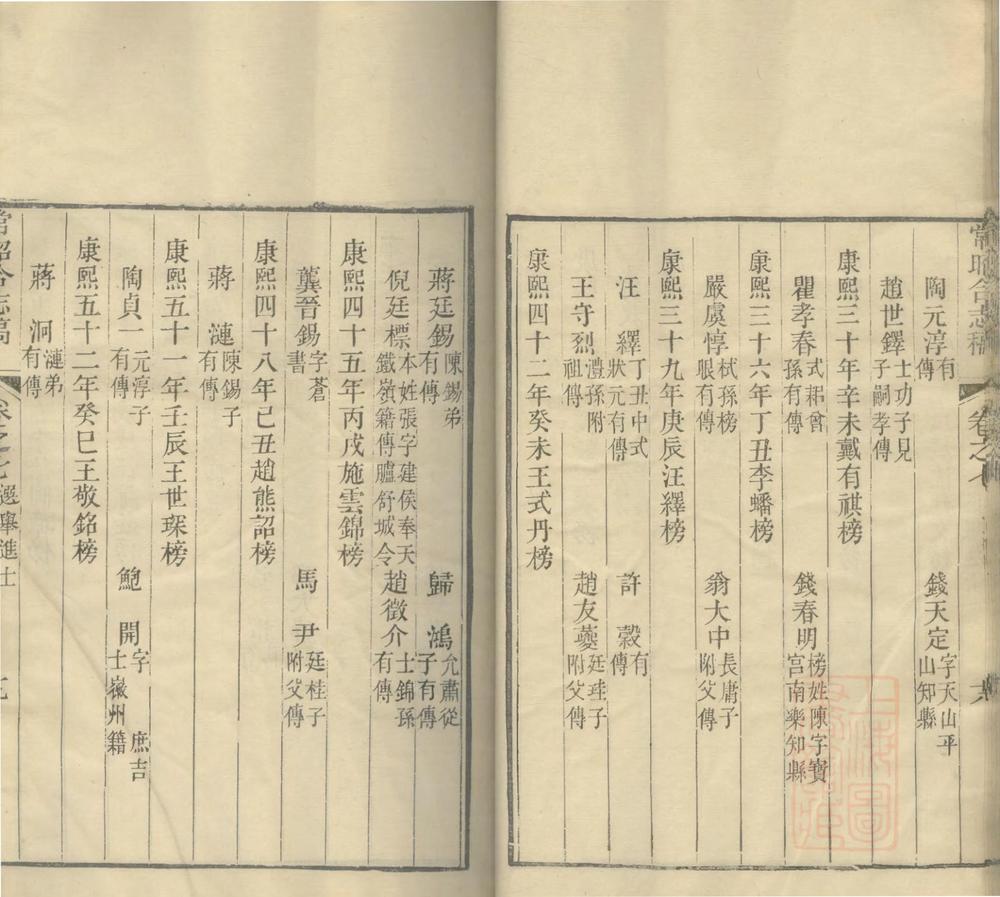 常昭合志稿 卷之七
陶元淳 有傳 錢天定 字天山平山知縣
趙世鐸 士功子兄子嗣孝傳
康熙三十年辛未戴有祺榜
瞿孝春 式耜曾孫有傳 錢春明 榜姓陳字寶宫南樂知縣
康熙三十六年丁丑李蟠榜
嚴虞惇 栻孫榜眼有傳 翁大中 長庸子附父傳
康熙三十九年庚辰汪繹榜
汪繹 丁丑中式狀元有傳 許穀 有傳
王守烈 澧孫附祖傳 趙友夔 廷珪子附父傳
康熙四十二年癸未王式丹榜
蔣廷錫 陳錫弟有傳 歸鴻 允肅從子有傳
倪廷標 本姓張字建侯奉天鐵嶺籍傳臚舒城令 趙徵介 士錦孫有傳
康熙四十五年丙戌施雲錦榜
龔晉錫 字蒼書 馬尹 廷桂子附父傳
康熙四十八年己丑趙熊詔榜
蔣漣 陳錫子有傳
康熙五十一年壬辰王世琛榜
陶貞一 元淳子有傳 鮑開 字庶吉士徽州籍
康熙五十二年癸巳王敬銘榜
蔣泂 漣弟有傳
常昭合志稿 卷之七 選舉進士